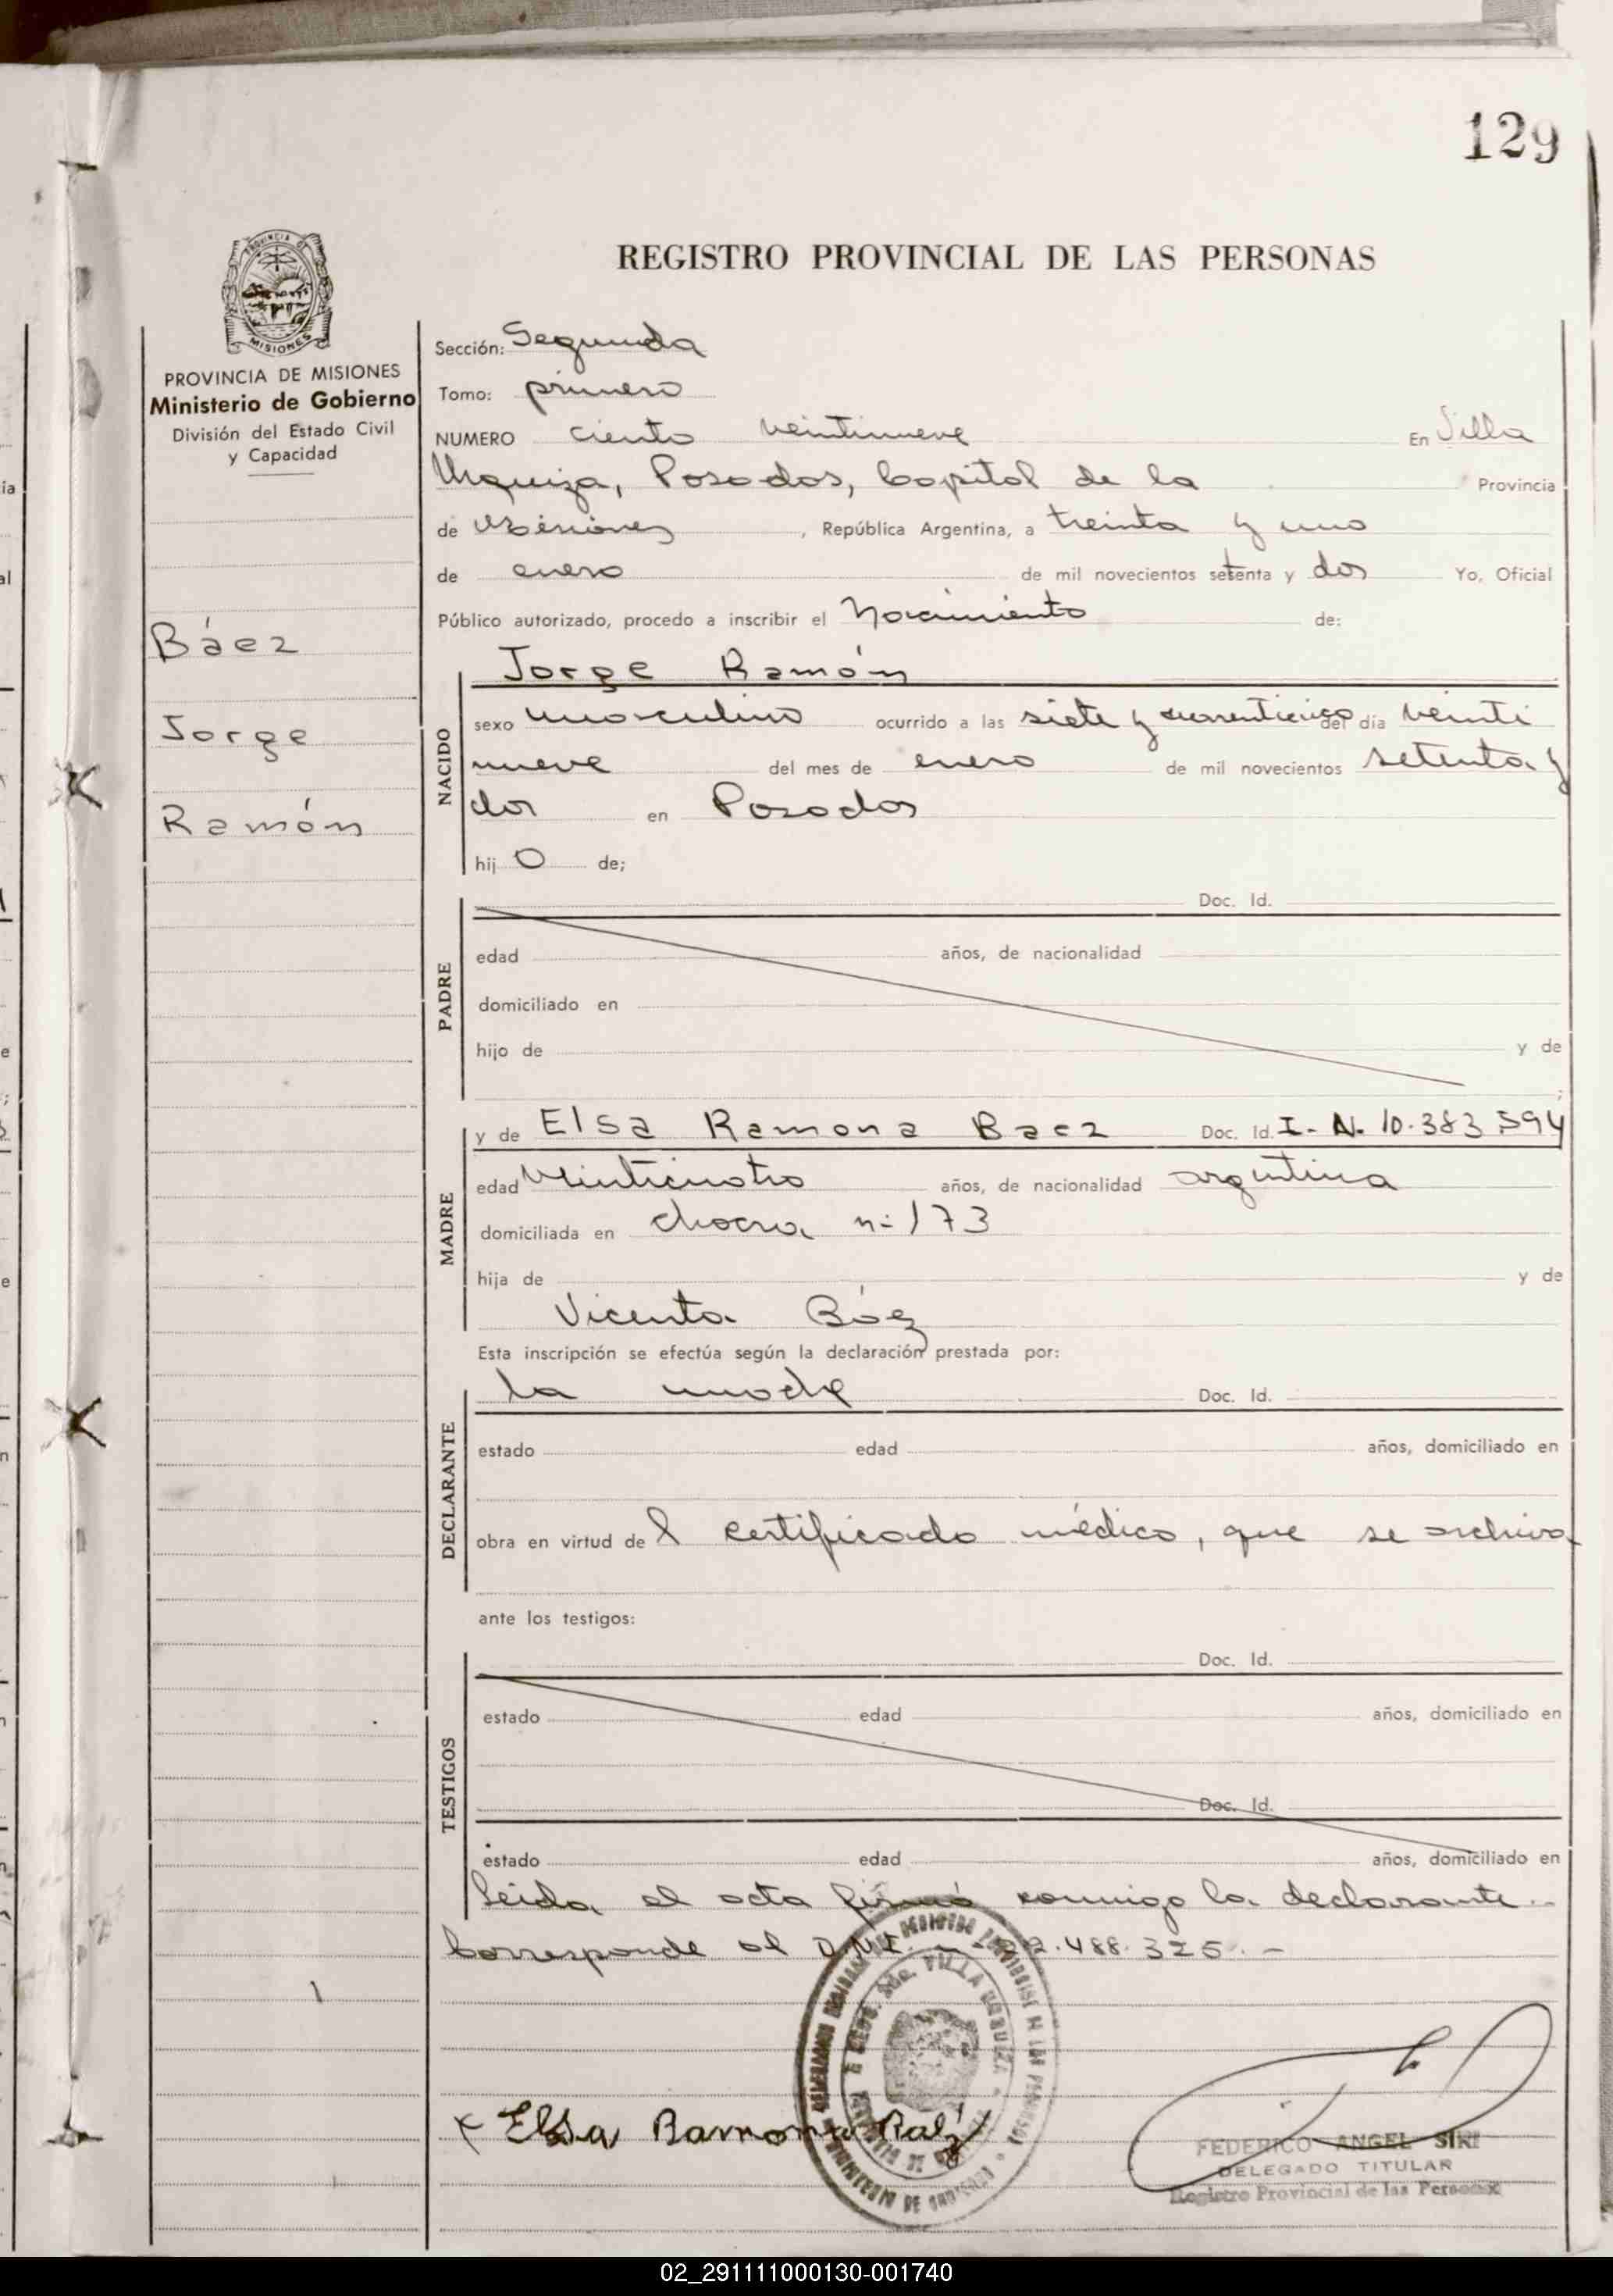 129
REGISTRO PROVINCIAL DE LAS PERSONAS
MISIONES
PROVINCIA DE MISIONES
Ministerio de Gobierno
División del Estado Civil
y Capacidad
Báez
Jorge
Ramón
Sección: Segunda
Tomo: primero
NUMERO ciento veintinueve En Villa
Urquiza, Posadas, Capital de la Provincia
de Misiones, República Argentina, a treinta y uno
de enero de mil novecientos setenta y dos Yo, Oficial
Público autorizado, procedo a inscribir el Nacimiento de:
NACIDO
Jorge Ramón
sexo masculino ocurrido a las siete y cuarenticinco del día veinti
nueve del mes de enero de mil novecientos setenta y
dos en Posadas
hij o de;
PADRE
Doc. Id.
edad años, de nacionalidad
domiciliado en
hijo de y de
;
MADRE
y de Elsa Ramona Baez Doc. Id. I. N. 10.383.594
edad veinticuatro años, de nacionalidad argentina
domiciliada en chacra n: 173
hija de y de
Vicenta Báez
Esta inscripción se efectúa según la declaración prestada por:
DECLARANTE
la madre Doc. Id.
estado edad años, domiciliado en
obra en virtud de l certificado médico, que se archiva
ante los testigos:
TESTIGOS
Doc. Id.
estado edad años, domiciliado en
Doc. Id.
estado edad años, domiciliado en
Leida el acta firmó conmigo la declarante.-
Corresponde al D.N.I. 22.488.325.-
VILLA URQUIZA
x Elsa Ramona Baéz
FEDERICO ANGEL SIRI
DELEGADO TITULAR
Registro Provincial de las Personas
02_291111000130-001740